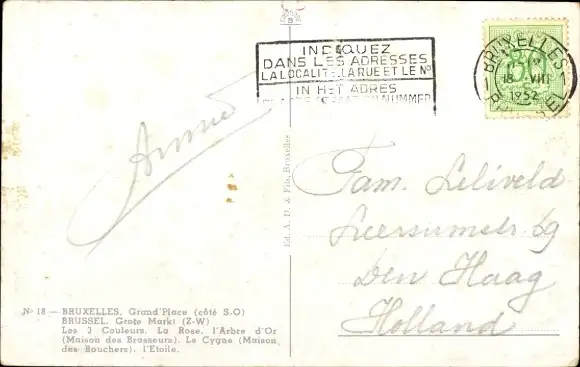 INDIQUEZ
DANS LES ADRESSES
LA LOCALITE, LA RUE ET LE No
IN HET ADRES
NUMMER
BRUXELLES
18 VIII
1952
Fam. Leliveld
69
Den Haag
Holland
Ed. A. D. & Fils, Bruxelles
No 18 — BRUXELLES. Grand'Place (côté S-O)
BRUSSEL. Grote Markt (Z-W)
Les 3 Couleurs. La Rose. l'Arbre d'Or
(Maison des Brasseurs). Le Cygne (Maison
des Bouchers). l'Etoile.